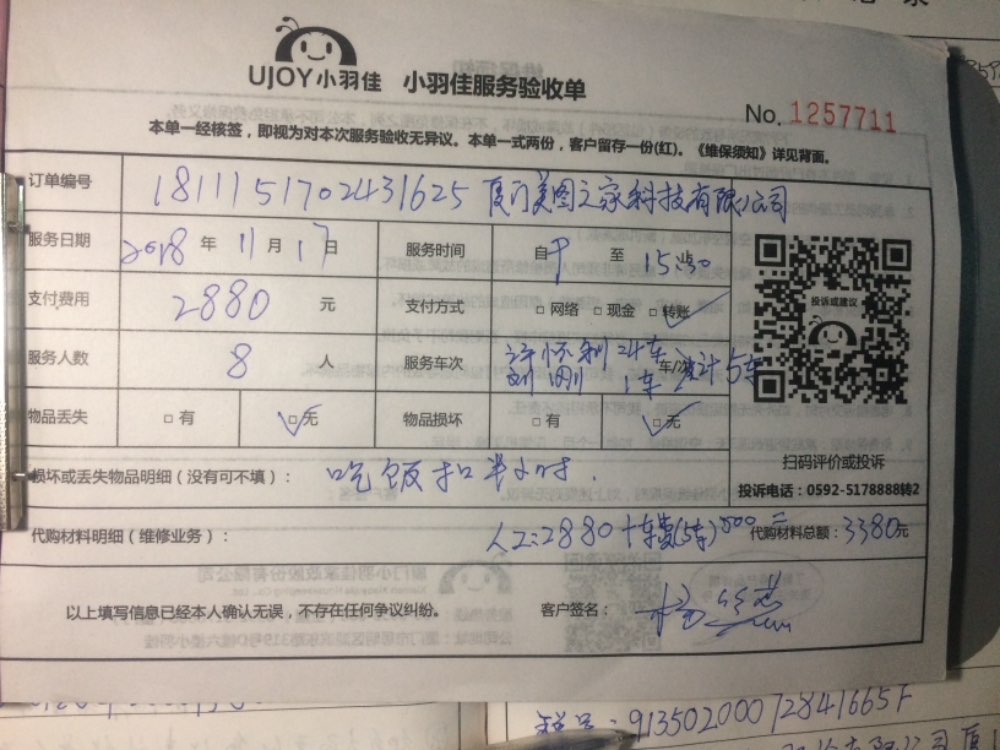 UJOY小羽佳 小羽佳服务验收单
No. 1257711
本单一经核签，即视为对本次服务验收无异议。本单一式两份，客户留存一份(红)。《维保须知》详见背面。
订单编号 1811151702431625 厦门美图之家科技有限公司
服务日期 2018 年 11 月 17 日 服务时间 自 至 15:30
支付费用 2880 元 支付方式 □ 网络 □ 现金 □ 转账
服务人数 8 人 服务车次 车/次 累计5车
刘刚 1车
物品丢失 □ 有 □ 无 物品损坏 □ 有 □ 无
投诉或建议
扫码评价或投诉
投诉电话：0592-5178888转2
损坏或丢失物品明细（没有可不填）： 吃饭扣半小时.
代购材料明细（维修业务）： 人工:2880+车费(5车)500= 代购材料总额：3380元
以上填写信息已经本人确认无误，不存在任何争议纠纷。 客户签名：
91350200072841665F